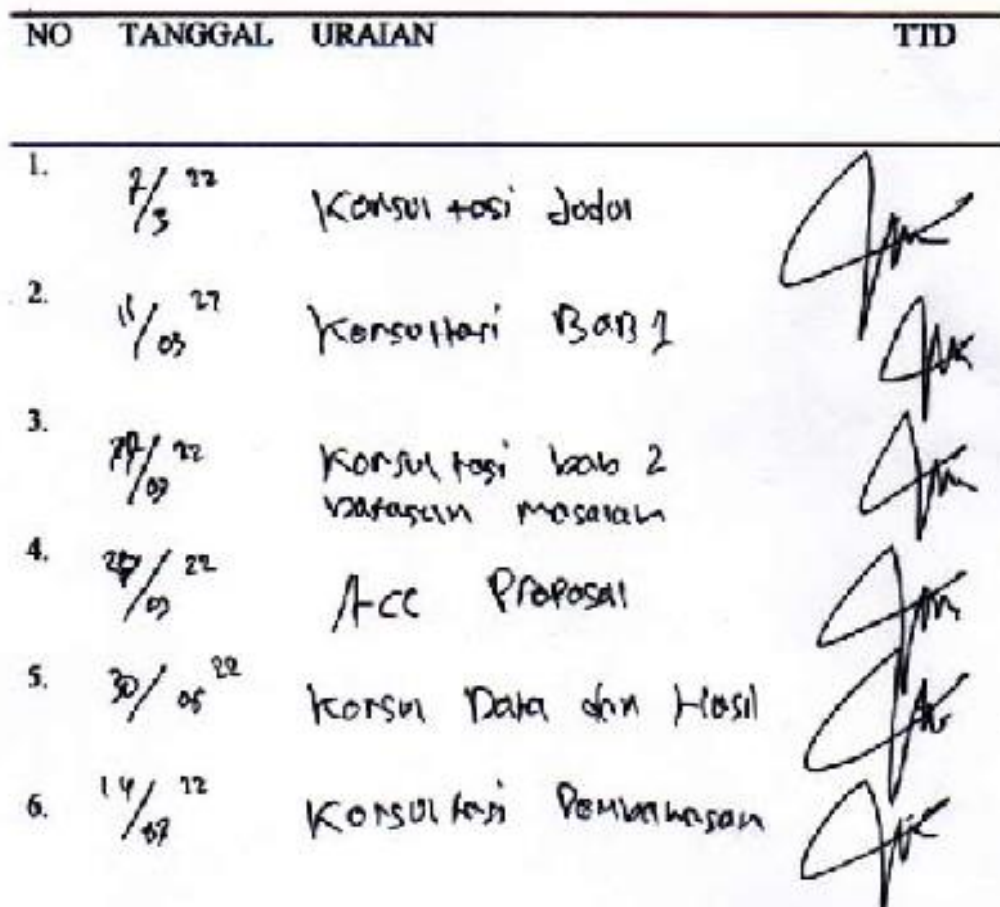 NO TANGGAL URAIAN TTD
1. 7/3 22 Konsultasi Judul
2. 11/03 22 Konsultasi BAB 1
3. 22 Konsultasi bab 2
batasan masalah
4. /03 22 Acc Proposal
5. 30/05 22 Konsul Data dan Hasil
6. 14/07 22 Konsultasi Pembahasan